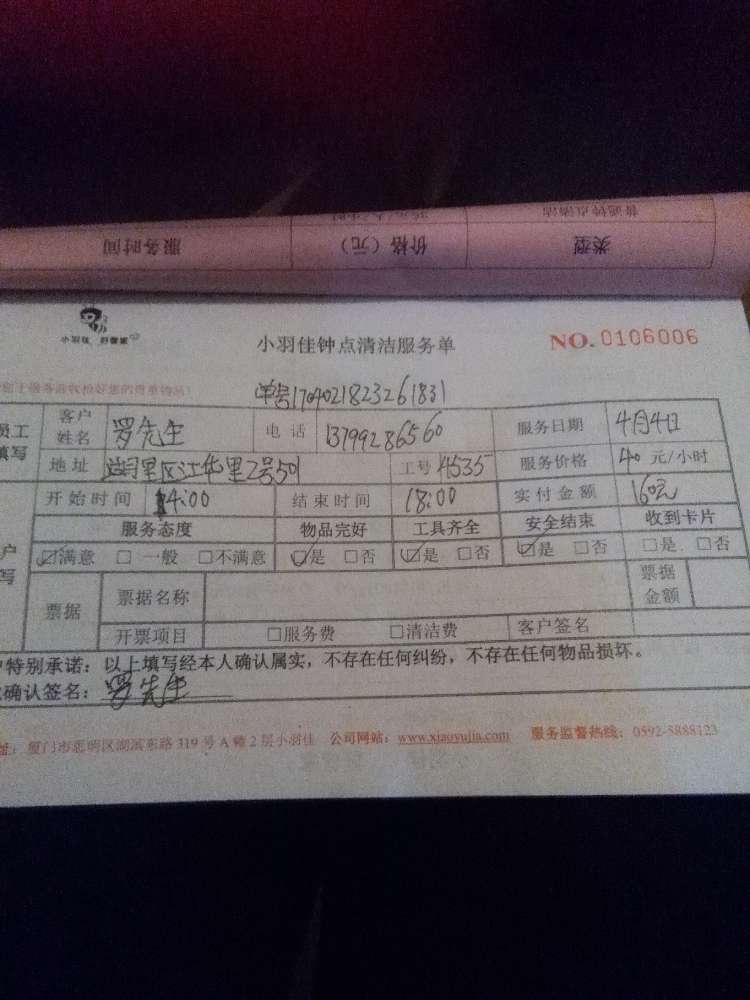 服务时间 价格（元） 类型
小羽佳 好管家
小羽佳钟点清洁服务单 NO. 0106006
单号1704021823261831
客户姓名 罗先生 电话 13799286560 服务日期 4月4日
地址 江华里2号501 工号 4535 服务价格 40 元/小时
开始时间 14:00 结束时间 18:00 实付金额 160元
服务态度 物品完好 工具齐全 安全结束 收到卡片
☑满意 □一般 □不满意 ☑是 □否 ☑是 □否 ☑是 □否 □是 □否
票据 票据名称 票据金额
开票项目 □服务费 □清洁费 客户签名
特别承诺：以上填写经本人确认属实，不存在任何纠纷，不存在任何物品损坏。
确认签名：罗先生
厦门市思明区湖滨东路 319 号 A 幢 2 层小羽佳 公司网站：www.xiaoyujia.com 服务监督热线：0592-5888123